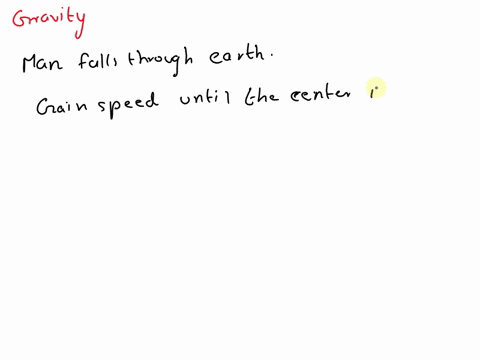 Gravity
Man falls through earth.
Gain speed until the center i